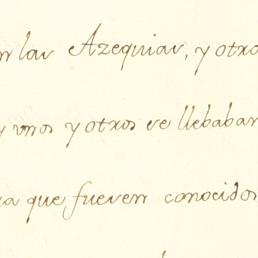 en las Azequias, y otro
y unos y otros se llebaban
ra que fuesen conocidos